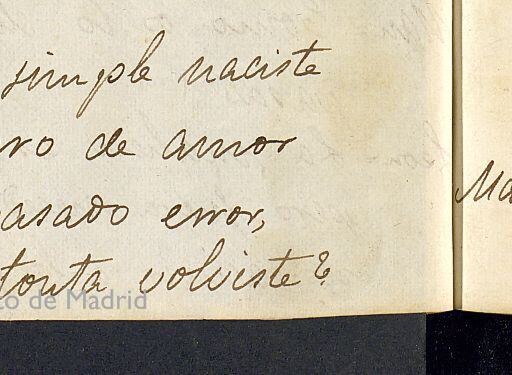 simple naciste
ro de amor
asado error,
tonta volviste?
to de Madrid
Ma